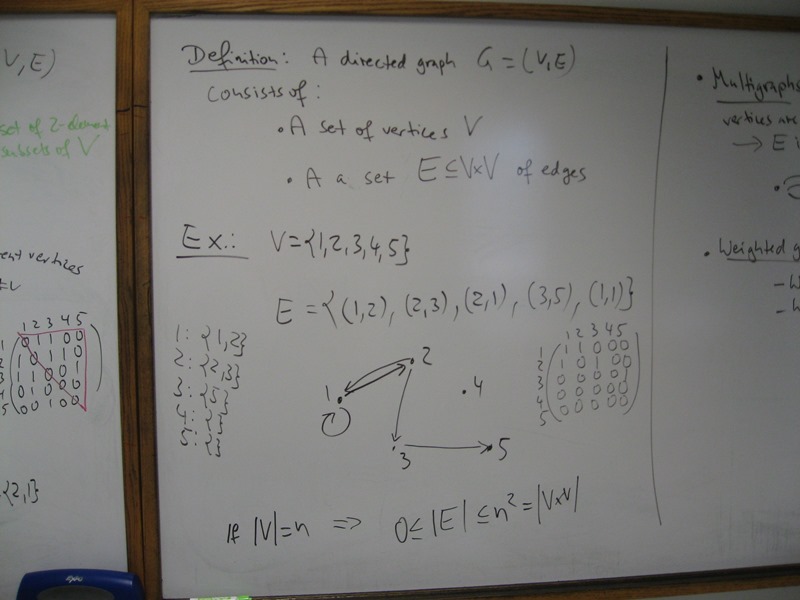 V, E)
set of 2-element
subsets of V
vertices
1 2 3 4 5
0 1 1 0 0
1 0 1 1 0
1 1 0 0 0
0 1 0 0 0
0 0 1 0 0
{2,1}
Definition: A directed graph G = (V, E)
consists of:
• A set of vertices V
• A a set E ⊆ V×V of edges
Ex.: V = {1,2,3,4,5}
E = {(1,2), (2,3), (2,1), (3,5), (1,1)}
1: {1,2}
3: {5}
4: {}
5: {}
1 2 3 4 5
1 2 3 4 5
1 1 0 0 0
1 0 1 0 0
If |V|=n ⇒ 0 ≤ |E| ≤ n² = |V×V|
• Multigraphs
vertices are
→ E i
• Weighted g